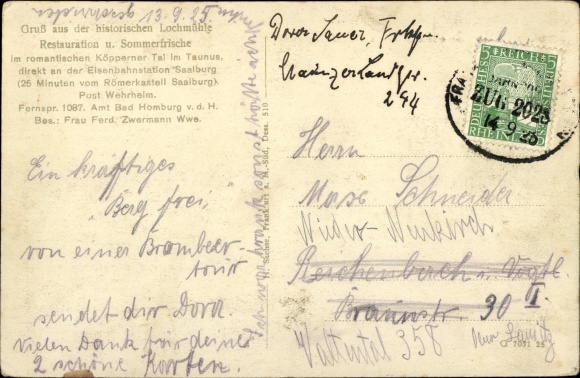 13.9.25
Gruß aus der historischen Lochmühle
Restauration u. Sommerfrische
im romantischen Köpperner Tal im Taunus,
direkt an der Eisenbahnstation Saalburg
(25 Minuten vom Römerkastell Saalburg)
Post Wehrheim.
Fernspr. 1087. Amt Bad Homburg v. d. H.
Bes.: Frau Ferd. Zwermann Wwe.
Ein kräftiges
"Berg frei"
von einer Brombeer-
tour
sendet dir Dora.
Vielen Dank für deine
2 schöne Karten.
Dora Sauer,
Mainzerlandstr.
294
DEUTSCHES REICH
5
ZUG 2025
14.9.25
Herrn
Max Schneider
Nieder-Neukirch
Reichenbach i. Vogtl.
Braunstr. 30 I.
Valtental 358